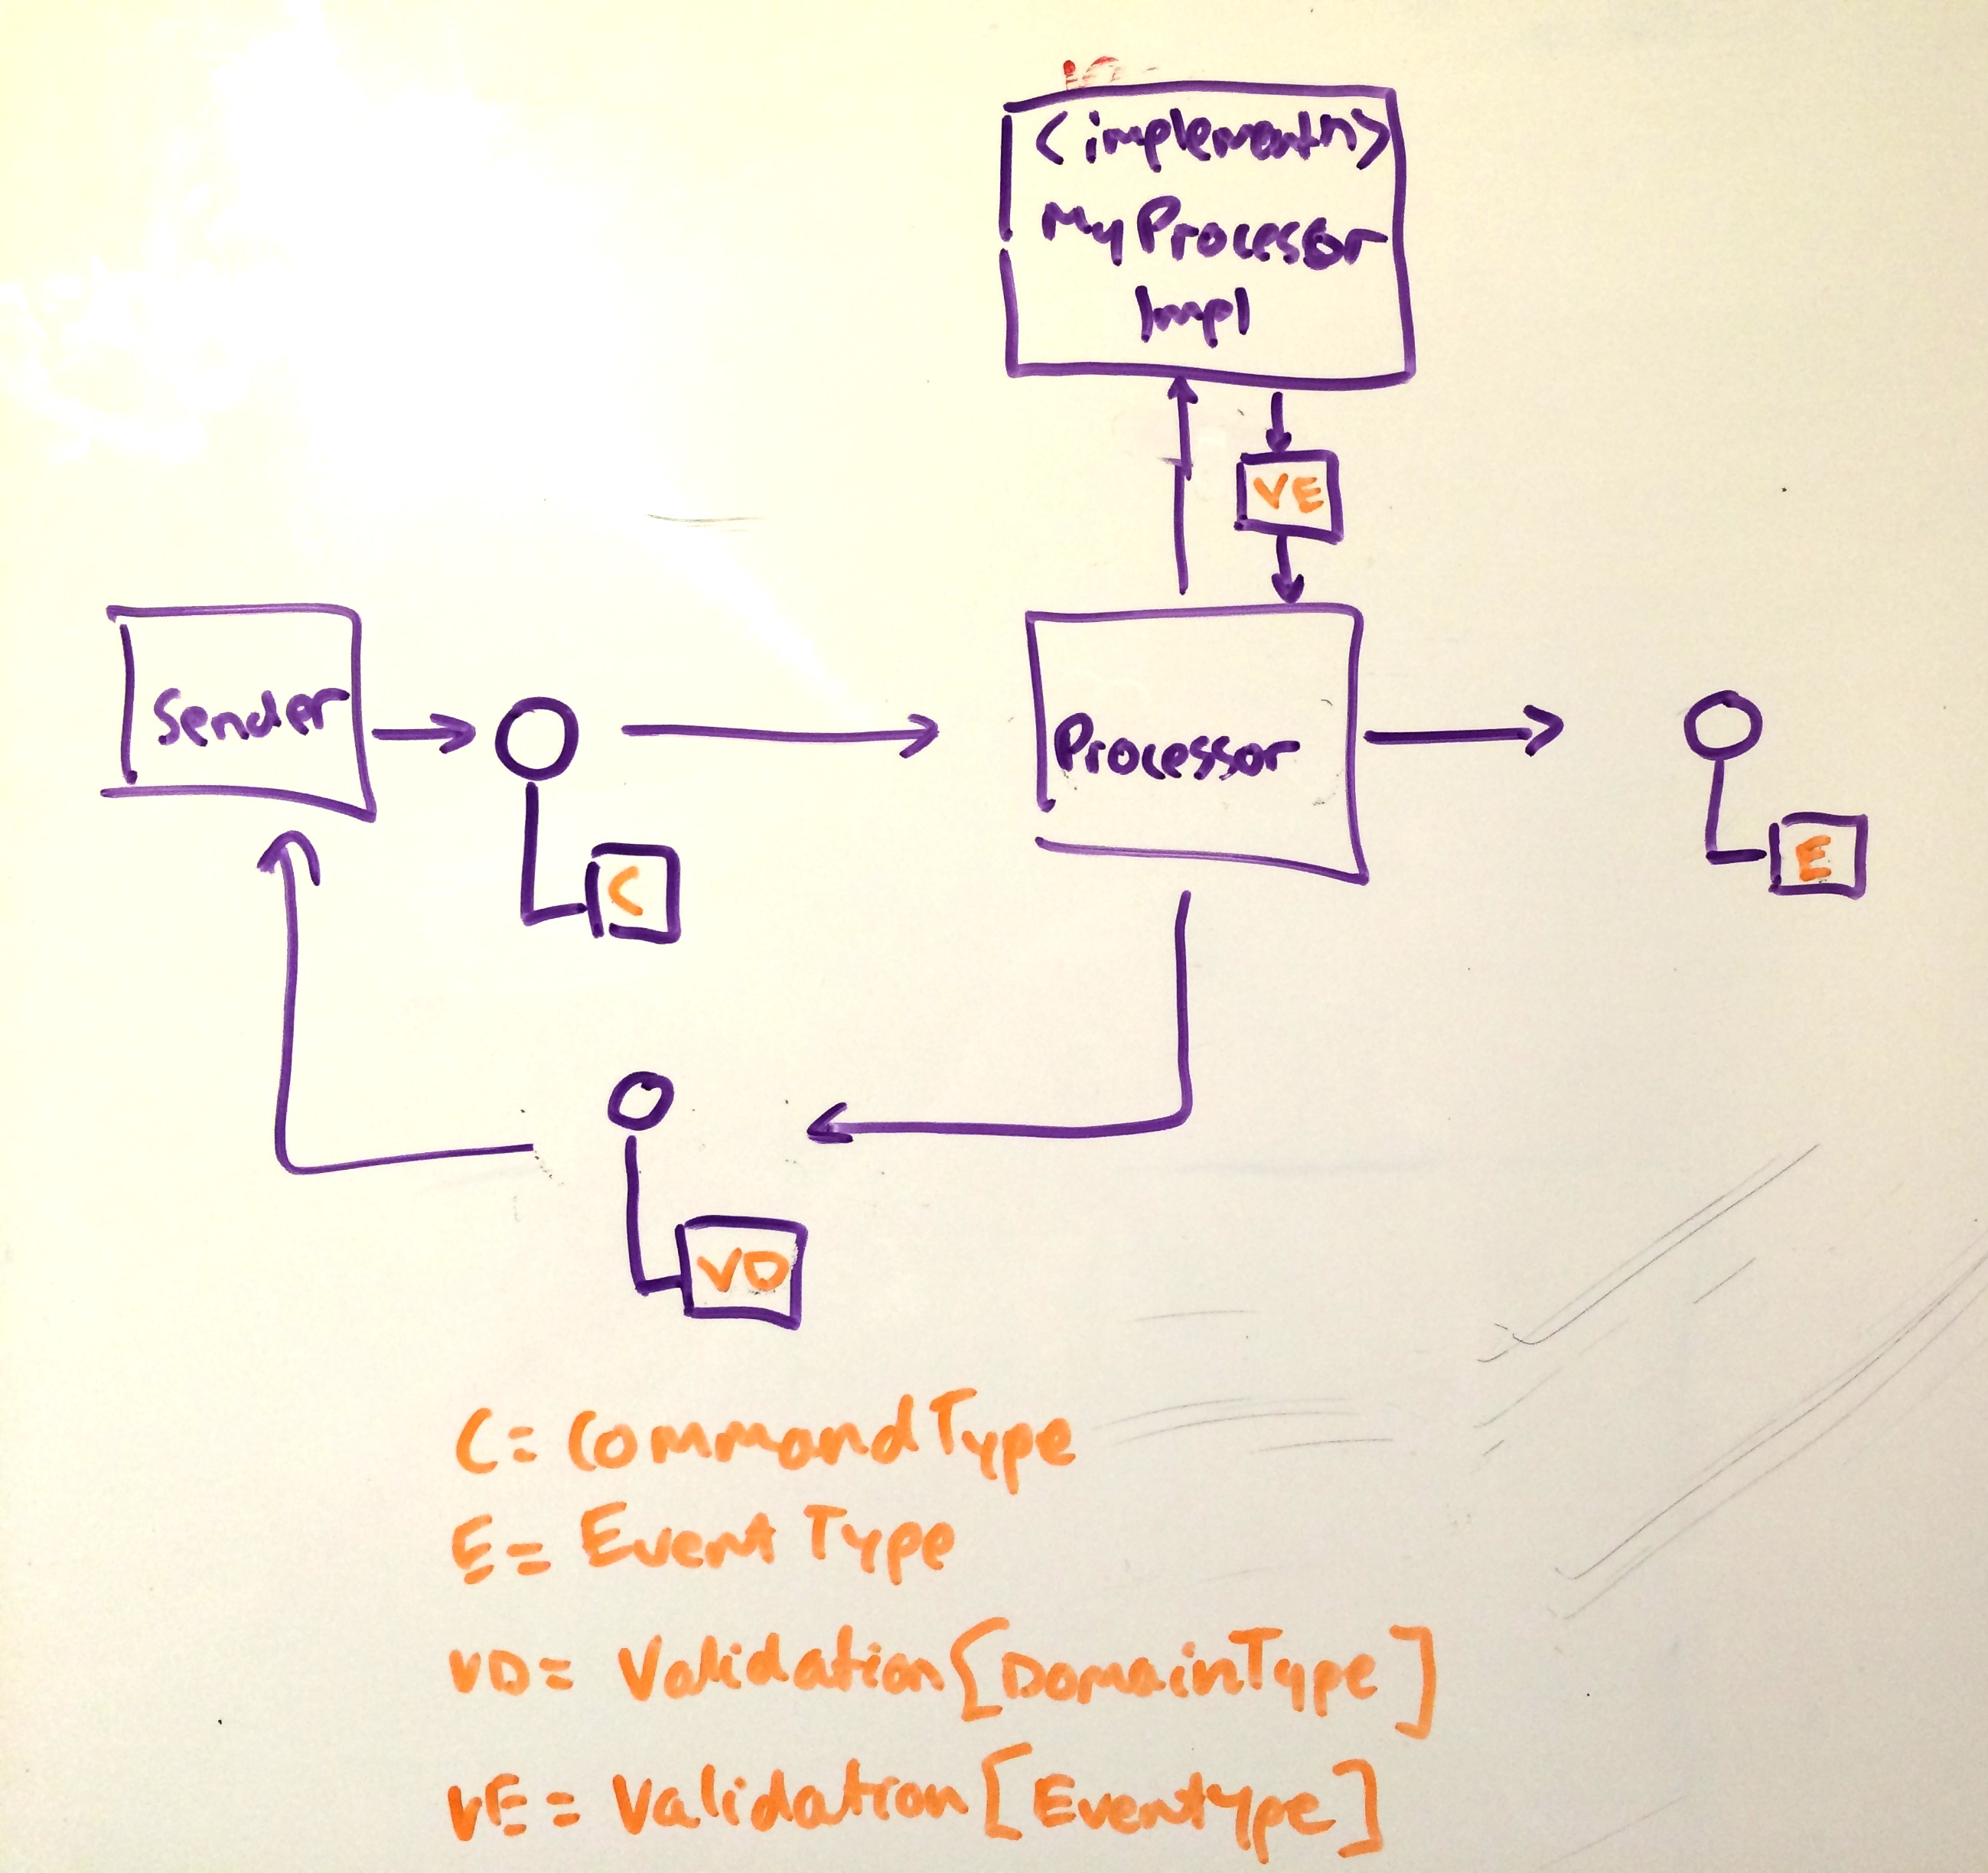 <implementn>
MyProcessor
Impl
VE
Sender
Processor
C
E
VD
C= CommandType
E= Event Type
VD= Validation[DomainType]
VE= Validation[Eventype]